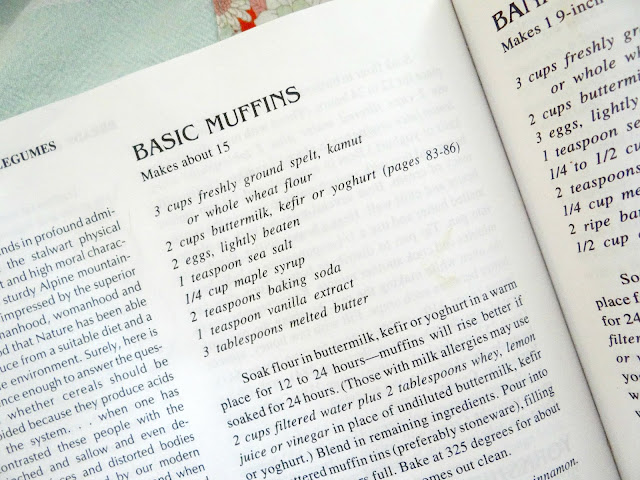 LEGUMES
nds in profound admi-
the stalwart physical
t and high moral charac-
sturdy Alpine mountain-
impressed by the superior
manhood, womanhood and
d that Nature has been able
duce from a suitable diet and a
e environment. Surely, here is
nce enough to answer the ques-
whether cereals should be
ided because they produce acids
the system. . . when one has
contrasted these people with the
nched and sallow and even de-
ces and distorted bodies
d by our modern
and when
BASIC MUFFINS
Makes about 15
3 cups freshly ground spelt, kamut
or whole wheat flour
2 cups buttermilk, kefir or yoghurt (pages 83-86)
2 eggs, lightly beaten
1 teaspoon sea salt
1/4 cup maple syrup
2 teaspoons baking soda
1 teaspoon vanilla extract
3 tablespoons melted butter
Soak flour in buttermilk, kefir or yoghurt in a warm
place for 12 to 24 hours—muffins will rise better if
soaked for 24 hours. (Those with milk allergies may use
2 cups filtered water plus 2 tablespoons whey, lemon
juice or vinegar in place of undiluted buttermilk, kefir
or yoghurt.) Blend in remaining ingredients. Pour into
buttered muffin tins (preferably stoneware), filling
full. Bake at 325 degrees for about
comes out clean.
cinnamon.
Makes 1 9-inch
3 cups freshly gr
or whole wh
2 cups buttermi
3 eggs, lightly
1 teaspoon se
1/4 to 1/2 cu
2 teaspoons
1/4 cup me
2 ripe ban
1/2 cup
So
place f
for 24
filter
or v
yo